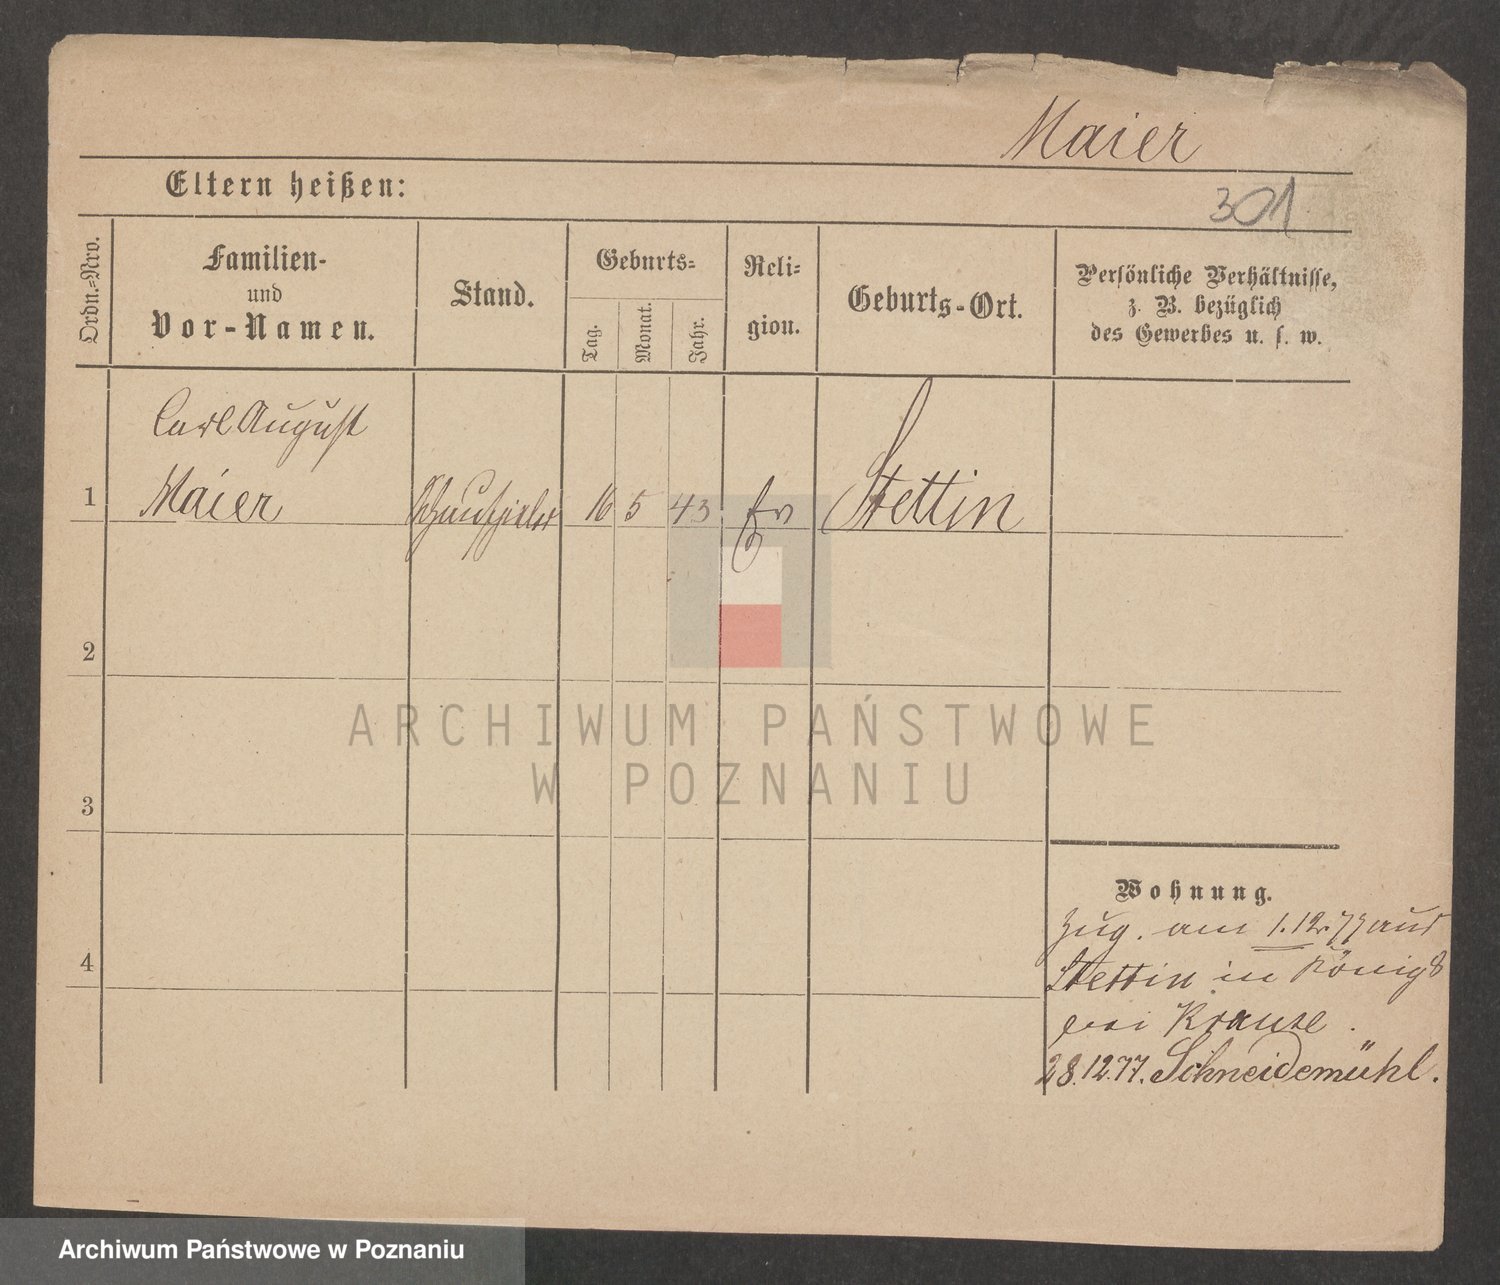 Maier
Eltern heißen:
301
Ordn.=Nro.
Familien-
und
Vor-Namen.
Stand.
Geburts=
Tag.
Monat.
Jahr.
Reli=
gion.
Geburts-Ort.
Persönliche Verhältnisse,
z. B. bezüglich
des Gewerbes u. s. w.
Carl August
1 Maier Schauspieler 16 5 43 Ev Stettin
2
ARCHIWUM PAŃSTWOWE
W POZNANIU
3
Wohnung.
Zug. am 1.12.77 aus
4
Stettin in Königs
Krause.
28.12.77. Schneidemühl.
Archiwum Państwowe w Poznaniu